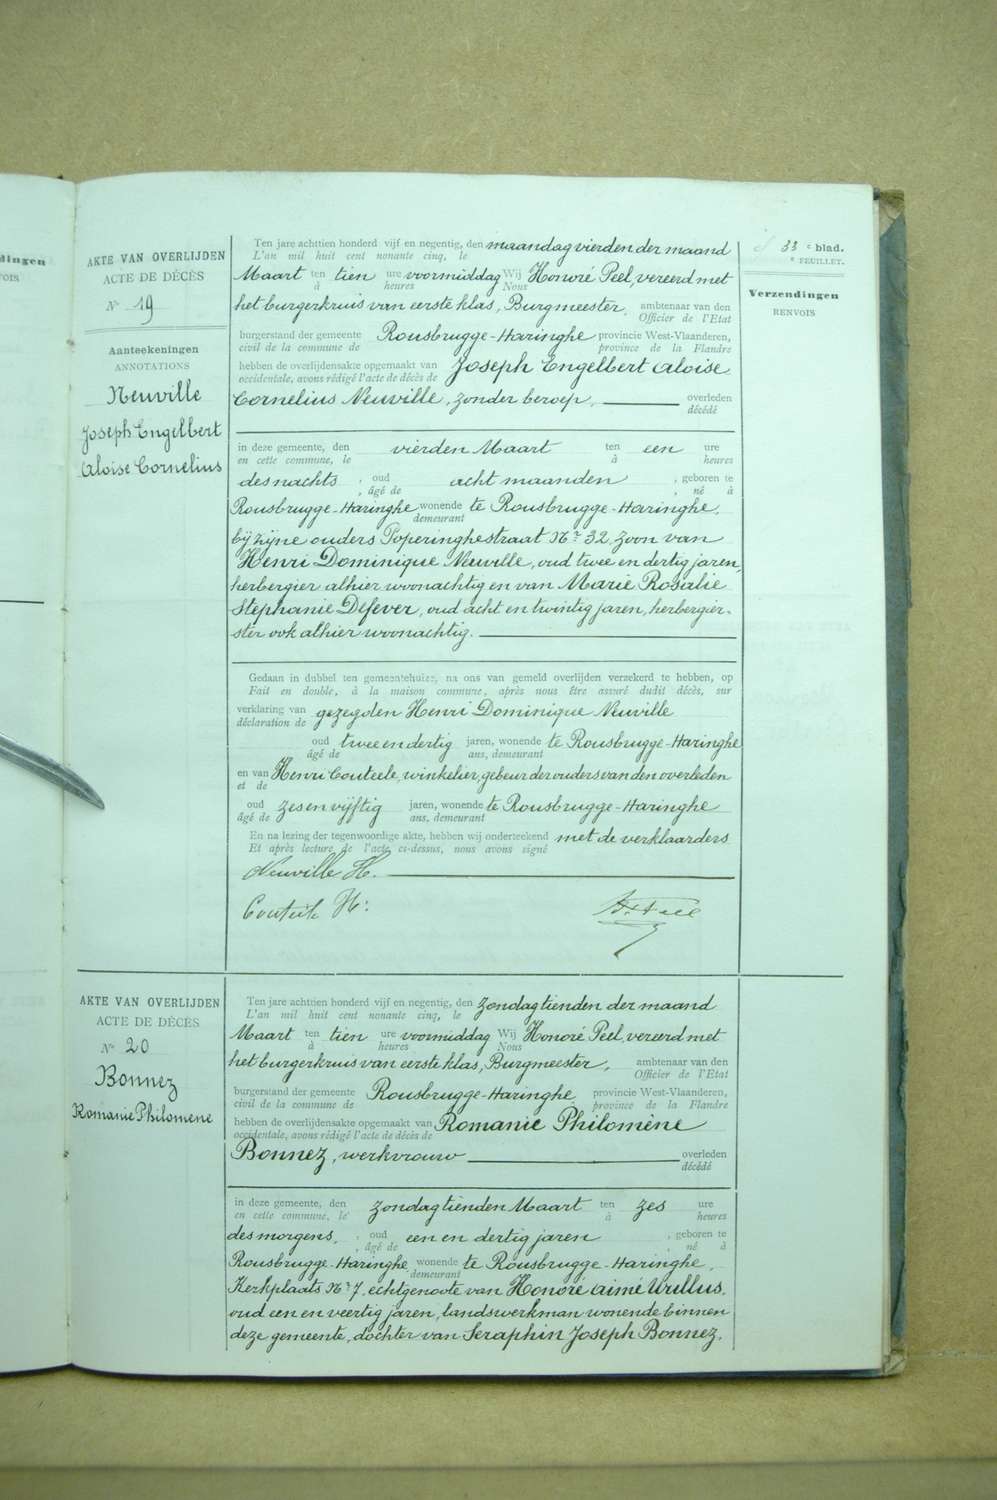 dingen
VOIS
33 e blad.
e FEUILLET.
Verzendingen
RENVOIS
AKTE VAN OVERLIJDEN
ACTE DE DÉCÈS
No 19
Aanteekeningen
ANNOTATIONS
Neuville
Joseph Engelbert
Aloise Cornelius
Ten jare achttien honderd vijf en negentig, den maandag vierden der maand
L'an mil huit cent nonante cinq, le
Maart ten tien ure voormiddag Wij Honoré Peel, vereerd met
à heures Nous
het burgerkruis van eerste klas, Burgmeester, ambtenaar van den
Officier de l'Etat
burgerstand der gemeente Rousbrugge-Haringhe provincie West-Vlaanderen,
civil de la commune de province de la Flandre
hebben de overlijdensakte opgemaakt van Joseph Engelbert Aloise
occidentale, avons rédigé l'acte de décès de
Cornelius Neuville, zonder beroep, overleden
décédé
in deze gemeente, den vierden Maart ten een ure
en cette commune, le à heures
des nachts, oud acht maanden, geboren te
, âgé de , né à
Rousbrugge-Haringhe wonende te Rousbrugge-Haringhe,
demeurant
bij zijne ouders Poperinghestraat No 32, zoon van
Henri Dominique Neuville, oud twee en dertig jaren,
herbergier alhier woonachtig en van Marie Rosalie
Stephanie Defever, oud acht en twintig jaren, herbergier-
ster ook alhier woonachtig.
Gedaan in dubbel ten gemeentehuize, na ons van gemeld overlijden verzekerd te hebben, op
Fait en double, à la maison commune, après nous être assuré dudit décès, sur
verklaring van gezegden Henri Dominique Neuville
déclaration de
oud twee en dertig jaren, wonende te Rousbrugge-Haringhe
âgé de ans, demeurant
en van Henri Couteele, winkelier, gebeur der ouders van den overleden
et de
oud zes en vijftig jaren, wonende te Rousbrugge-Haringhe
âgé de ans, demeurant
En na lezing der tegenwoordige akte, hebben wij onderteekend met de verklaarders
Et après lecture de l'acte ci-dessus, nous avons signé
Neuville H.
Couteele H:
AKTE VAN OVERLIJDEN
ACTE DE DÉCÈS
No 20
Bonnez
Romanie Philomene
Ten jare achttien honderd vijf en negentig, den zondag tienden der maand
L'an mil huit cent nonante cinq, le
Maart ten tien ure voormiddag Wij Honoré Peel, vereerd met
à heures Nous
het burgerkruis van eerste klas, Burgmeester, ambtenaar van den
Officier de l'Etat
burgerstand der gemeente Rousbrugge-Haringhe provincie West-Vlaanderen,
civil de la commune de province de la Flandre
hebben de overlijdensakte opgemaakt van Romanie Philomène
occidentale, avons rédigé l'acte de décès de
Bonnez, werkvrouw overleden
décédé
in deze gemeente, den zondag tienden Maart ten zes ure
en cette commune, le à heures
des morgens, oud een en dertig jaren, geboren te
, âgé de , né à
Rousbrugge-Haringhe wonende te Rousbrugge-Haringhe,
demeurant
Kerkplaats No 7, echtgenoote van Honoré Aimé Urillus,
oud een en veertig jaren, landswerkman wonende binnen
deze gemeente, dochter van Seraphin Joseph Bonnez,